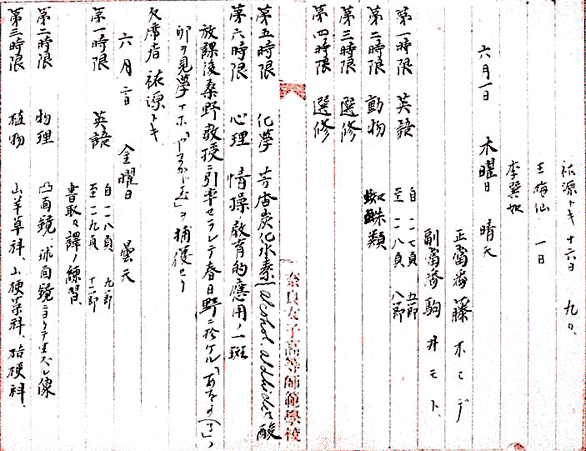 祐源トキ 十六日 九〇、
王梅仙 一日
李巽如
六月一日 木曜日 晴天
正当番 藤ホミデ
副当番 駒井モト、
第一時限 英語 自一一七頁 五節
至一一八頁 八節
第二時限 動物 蜘蛛類
第三時限 選修
第四時限 選修
奈良女子高等師範學校
第五時限 化學 芳香炭化水素 alcohol, aldehyde 酸
第六時限 心理 情操教育的應用ノ一斑
放課後桑野教授ニ引率セラレテ春日野ニ於ケル
卵ヲ見學 ヲ捕獲セリ
欠席者 祐源トキ
六月二日 金曜日 曇天
第一時限 英語 自一一八頁 九節
至一一九頁 十二節
書取ト譯ノ練習
第二時限 物理 凸面鏡、球面鏡ニヨリテ生ズル像
第三時限 植物 山羊草科、山梗菜科、桔梗科、